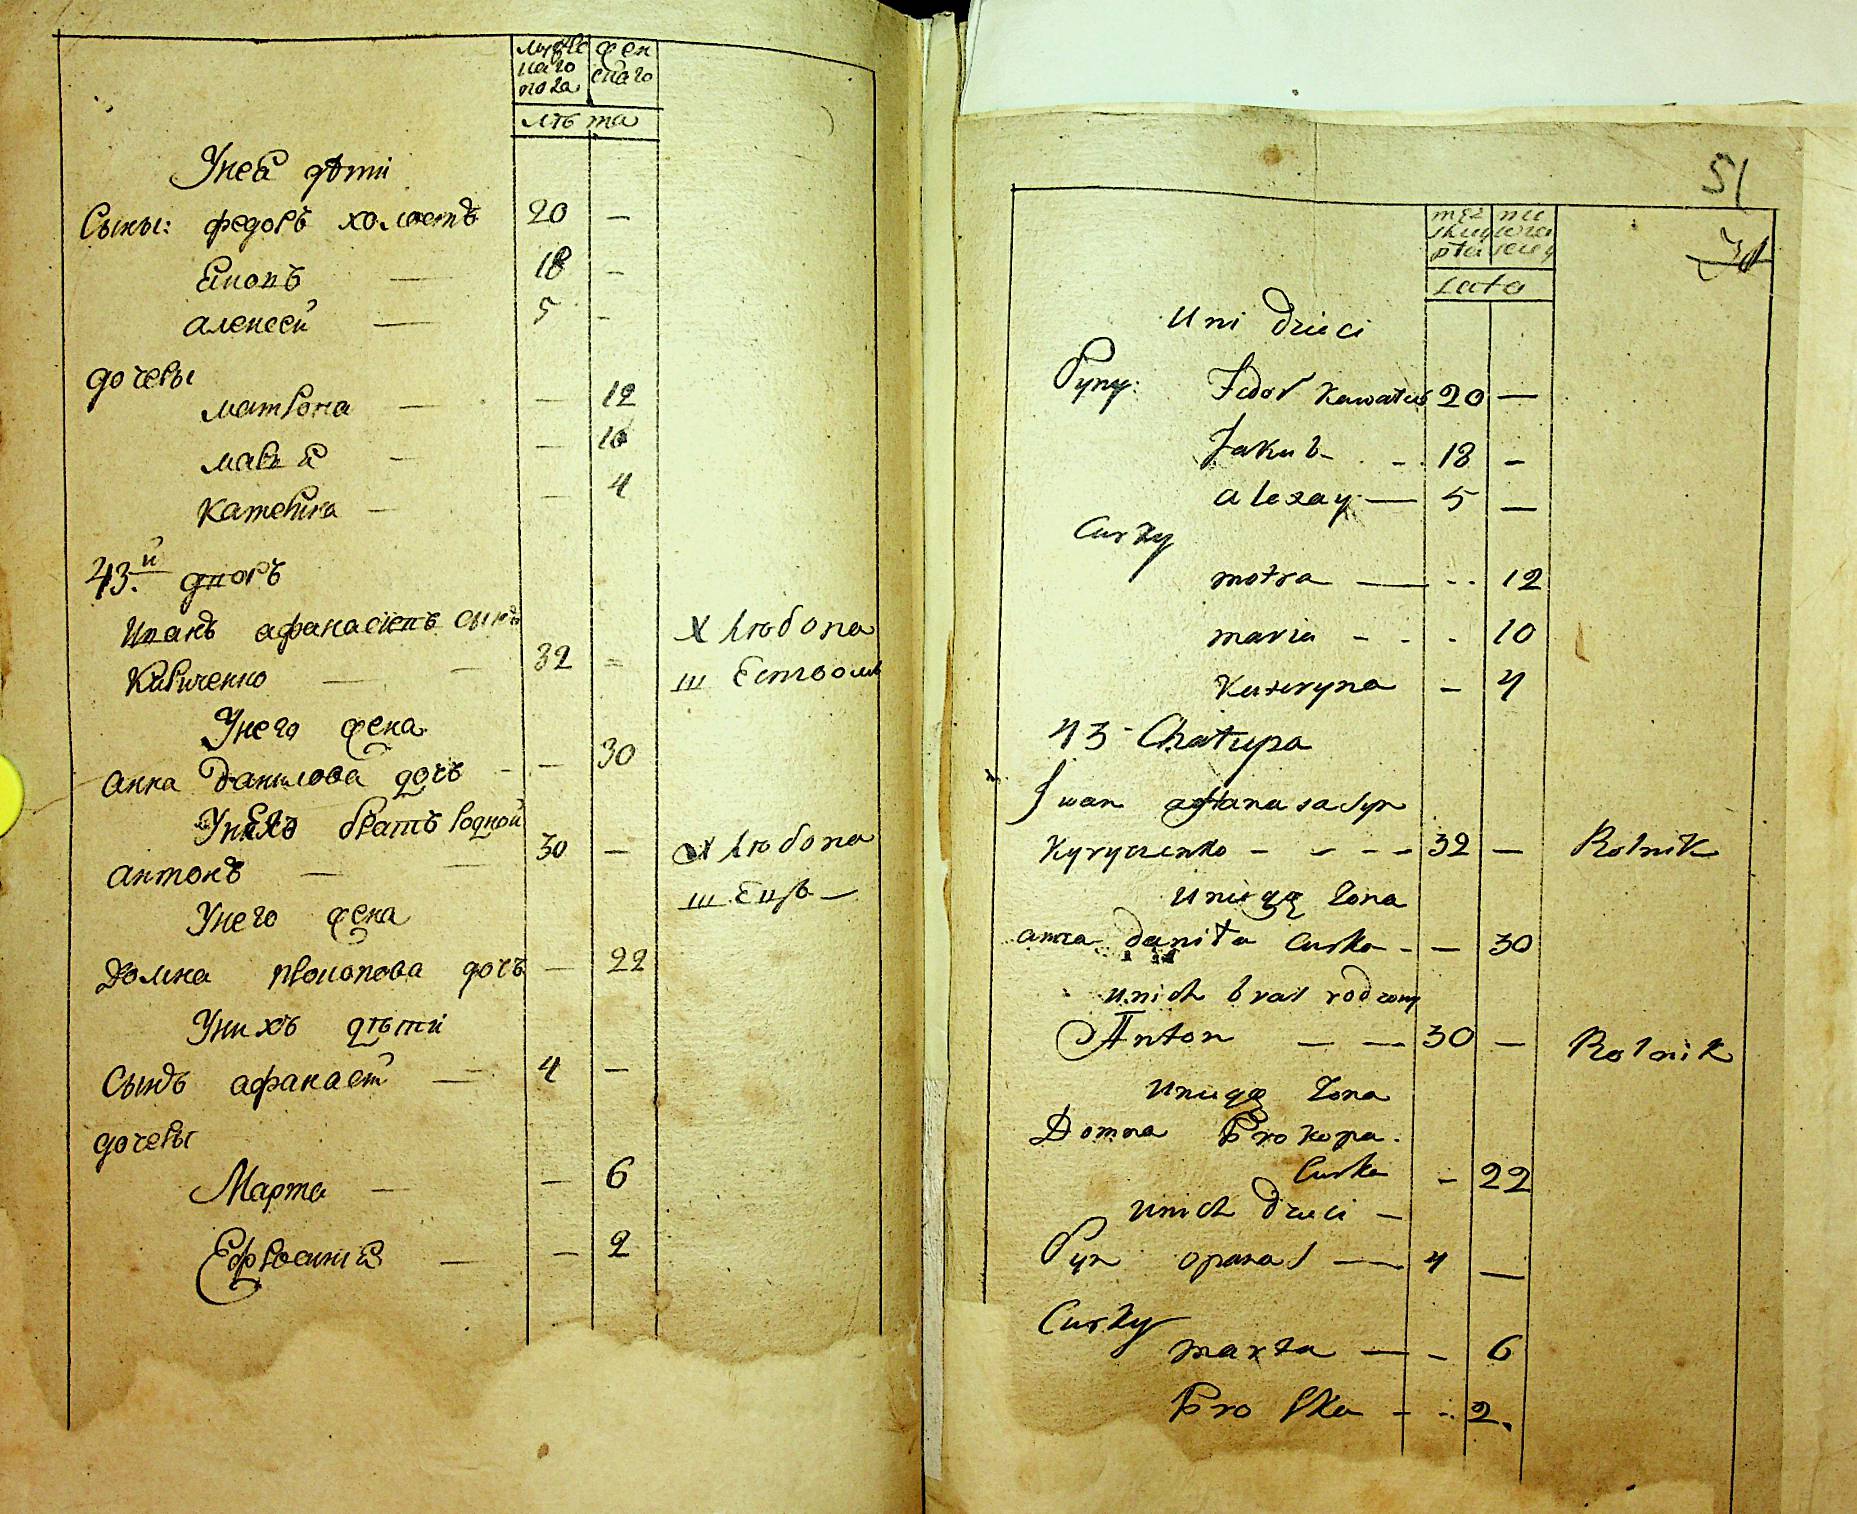 мужескаго пола
женскаго
лѣта
Унеи дѣти
Сыны: федоръ холостъ 20 —
Еиовъ — 18 —
алексей — 5 —
дочеры
матрона — — 12
марія — — 10
Катерина — — 4
43.й дворъ
Иванъ афанасіевъ сынъ
Киримченко — 32 —
Унего жена
анна Данилова дочъ — — 30
Унихъ братъ родной
антонъ — 30 —
Унего жена
Домна прокопова дочъ — 22
Унихъ дѣти
Сынъ афанасій — 4 —
дочеры
Марта — — 6
Ефросинія — — 2
х любопа
ш
х любопа
ш
51
lata
Uni dzieci
Syny: Fedor Kawaler 20 —
Jakub — 18 —
alexay — 5 —
Curky
motra — — 12
maria — — 10
Kateryna — 4
43 - Chałupa
Iwan afanasa syn
Kyryczenko — 32 — Rolnik
Uniego żona
anna daniła Curka — — 30
unich brat rodzony
Anton — — 30 — Rolnik
Uniego żona
Domna Prokopa
Curka — 22
Unich dzieci —
Syn opanas — 4 —
Curky
marta — — 6
Proska — — 2.